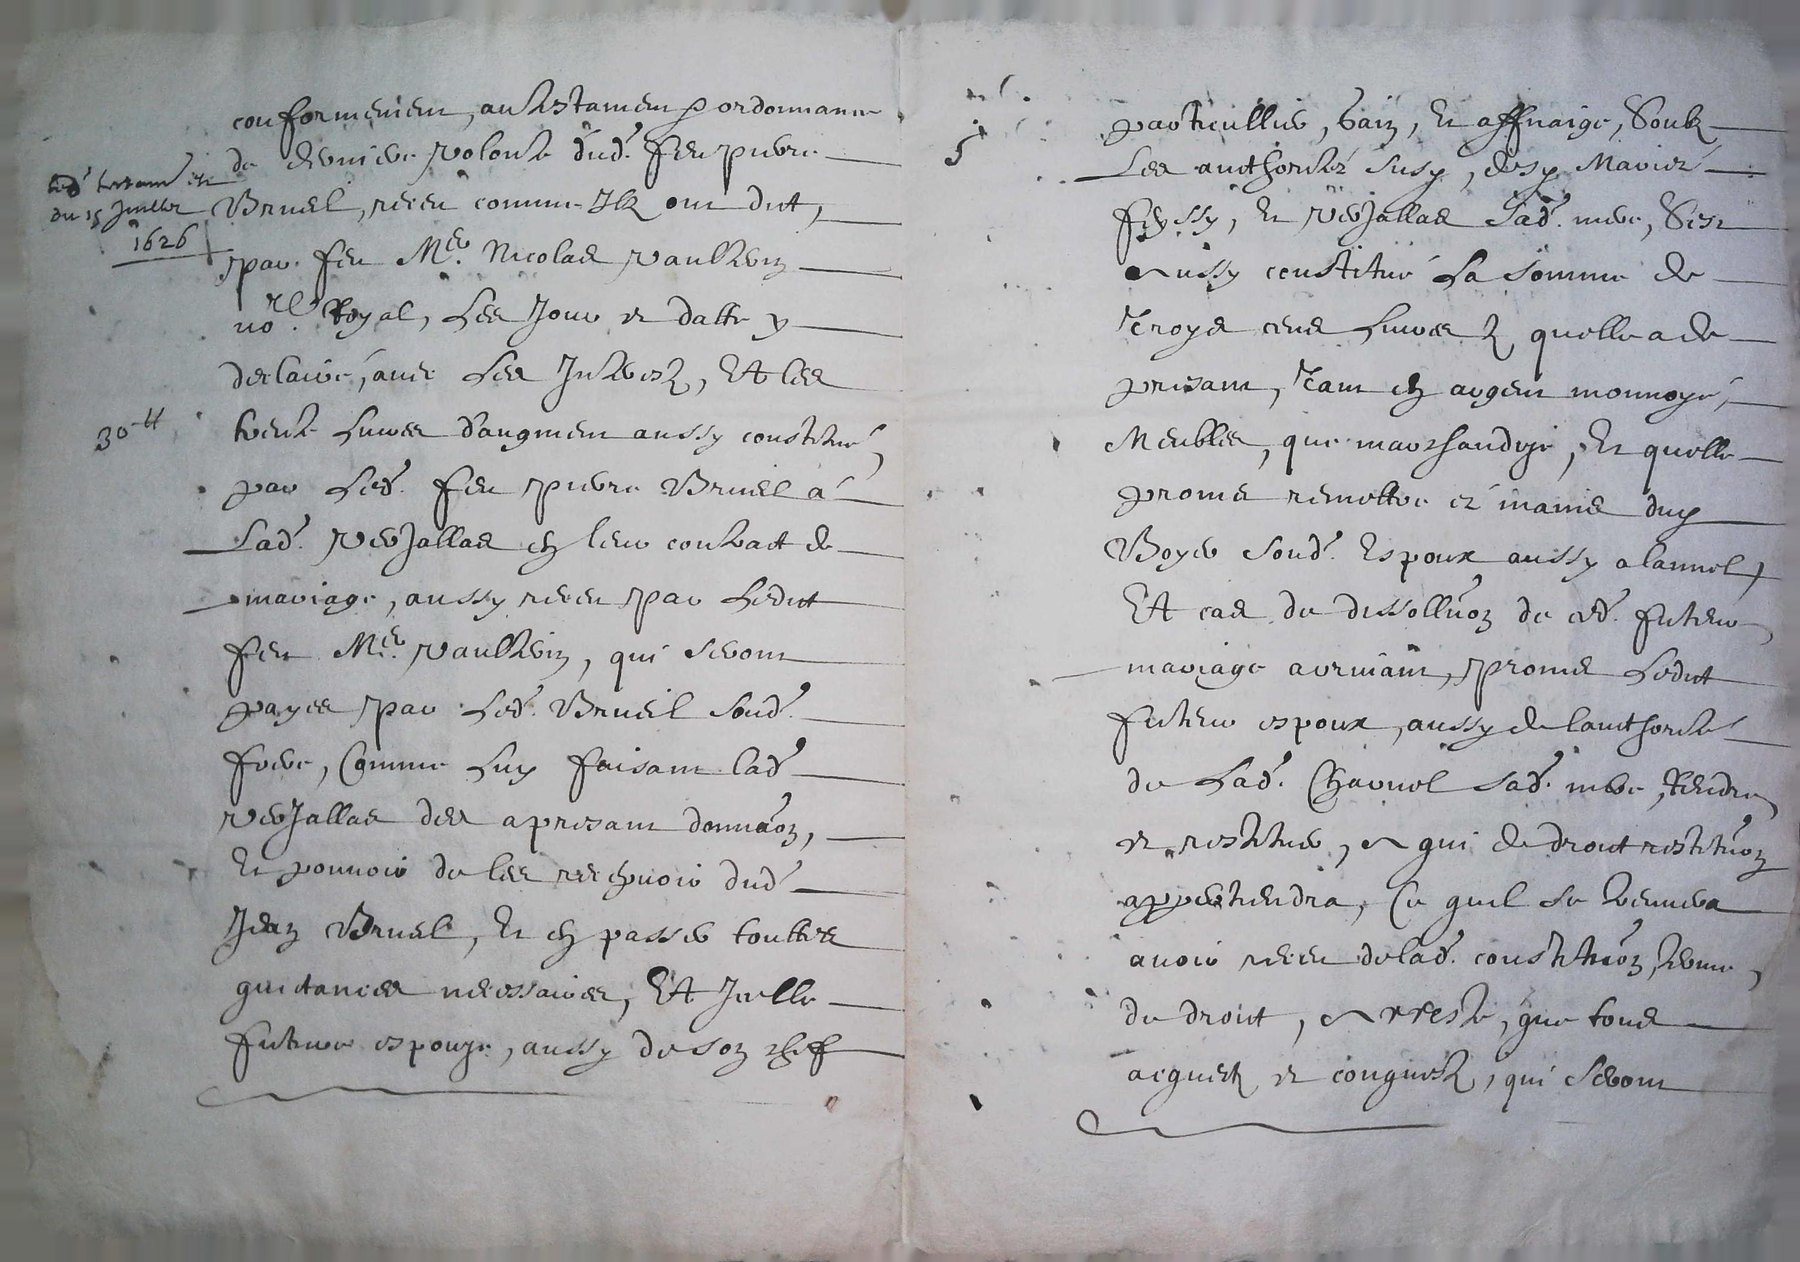 conformement, au testament & ordonnance
de derniere volonté dud. feu pierre
led. testament est
du 15 Juillet
1626
Bruel, receu comme Ilz ont dit,
par feu Me. Nicolas vaultrin
nore. Royal, Les Jour et datte y
declairé, avec Les Interestz, Et les
30 tt
trente Livres d'augment aussy constitué,
par Led. feu pierre Bruel á
Lad. verJallas en leur contract de
mariage, aussy receu par Ledict
feu Me. vaultrin, qui seront
payes par Led. Bruel soud.
frere, Comme Luy faisant lad.
verJallas des a present donnaon,
Et pouvoir de les recepvoir dud.
Jean Bruel, Et en passer touttes
quictances necessaires, Et Icelle
future espouze, aussy de son chef
5
particullier, gain, Et affnaige, Soubz
Les aucthorités susd, desd Mariés
feyssy, Et verJallas sad. mere, S'est
aussy constitué La somme de
Troys cens Livres quelle a de
present, Tant en argent monnoyé,
Meubles, que marchandize, Et quelle
promet remettre ez mains dud
Boyer soud. Espoux aussy a lannel,
Et cas de dissolluon de ced. futeur
mariage advenant, promet Ledict
futeur espoux, aussy de laucthorité
de Lad. Charnel sad. mere, Rendre
et restituer, a qui de droict restituon
appertiendra, Ce quil se treuvera
avoir receu de lad. constituon, comme
de droict, a reste, que tous
acquetz et conquestz, qui seront